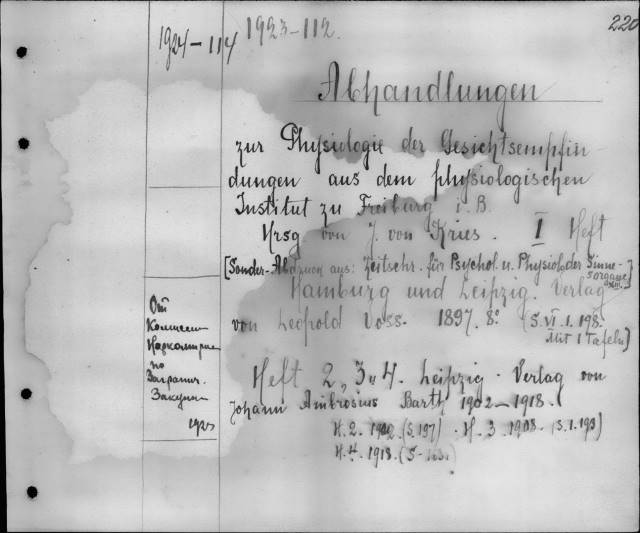 220
1924-114
1923-112.
Abhandlungen
zur Physiologie der Gesichtsempfin-
dungen aus dem physiologischen
Institut zu Freiburg i. B.
Hrsg von J. von Kries. I Heft
[Sonder-Abdruck aus: Zeitschr. für Psychol. u. Physiol. der Sinne-
sorgane
Hamburg und Leipzig. Verlag
von Leopold Voss. 1897. 8° (S. VI. 1. 198.
Mit 1 Tafeln)
Heft 2, 3 u 4. Leipzig. Verlag von
Johann Ambrosius Barth 1902-1918.
H. 2. 1902. (S. 197) . H. 3. 1908. (S. 1. 193)
H. 4. 1918. (S-
От
Комиссии
по
Загранич.
Закупки